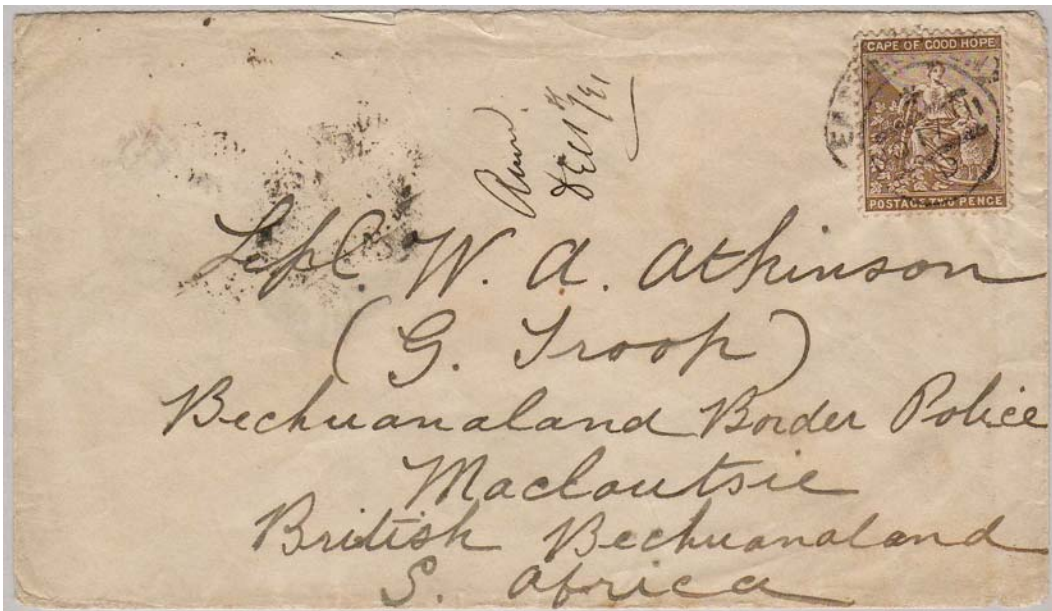 CAPE OF GOOD HOPE
POSTAGE TWO PENCE
W. A. Atkinson
(G. Troop)
Bechuanaland Border Police
Macloutsie
British Bechuanaland
S. Africa